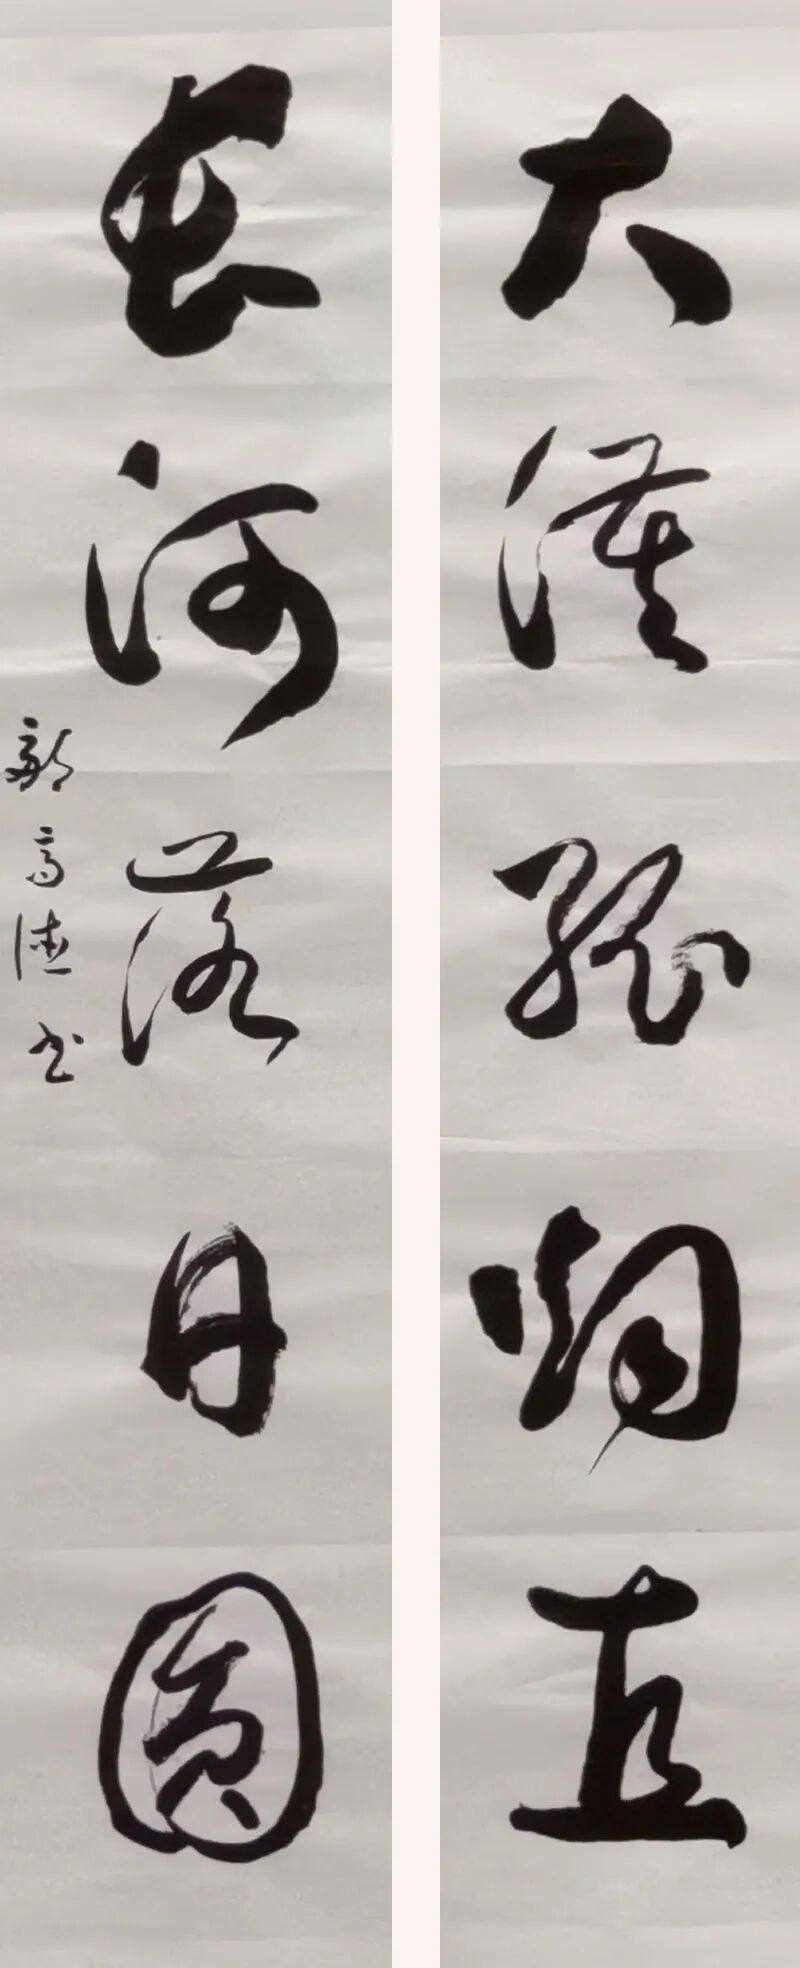 大漠孤烟直
长河落日圆
高德书